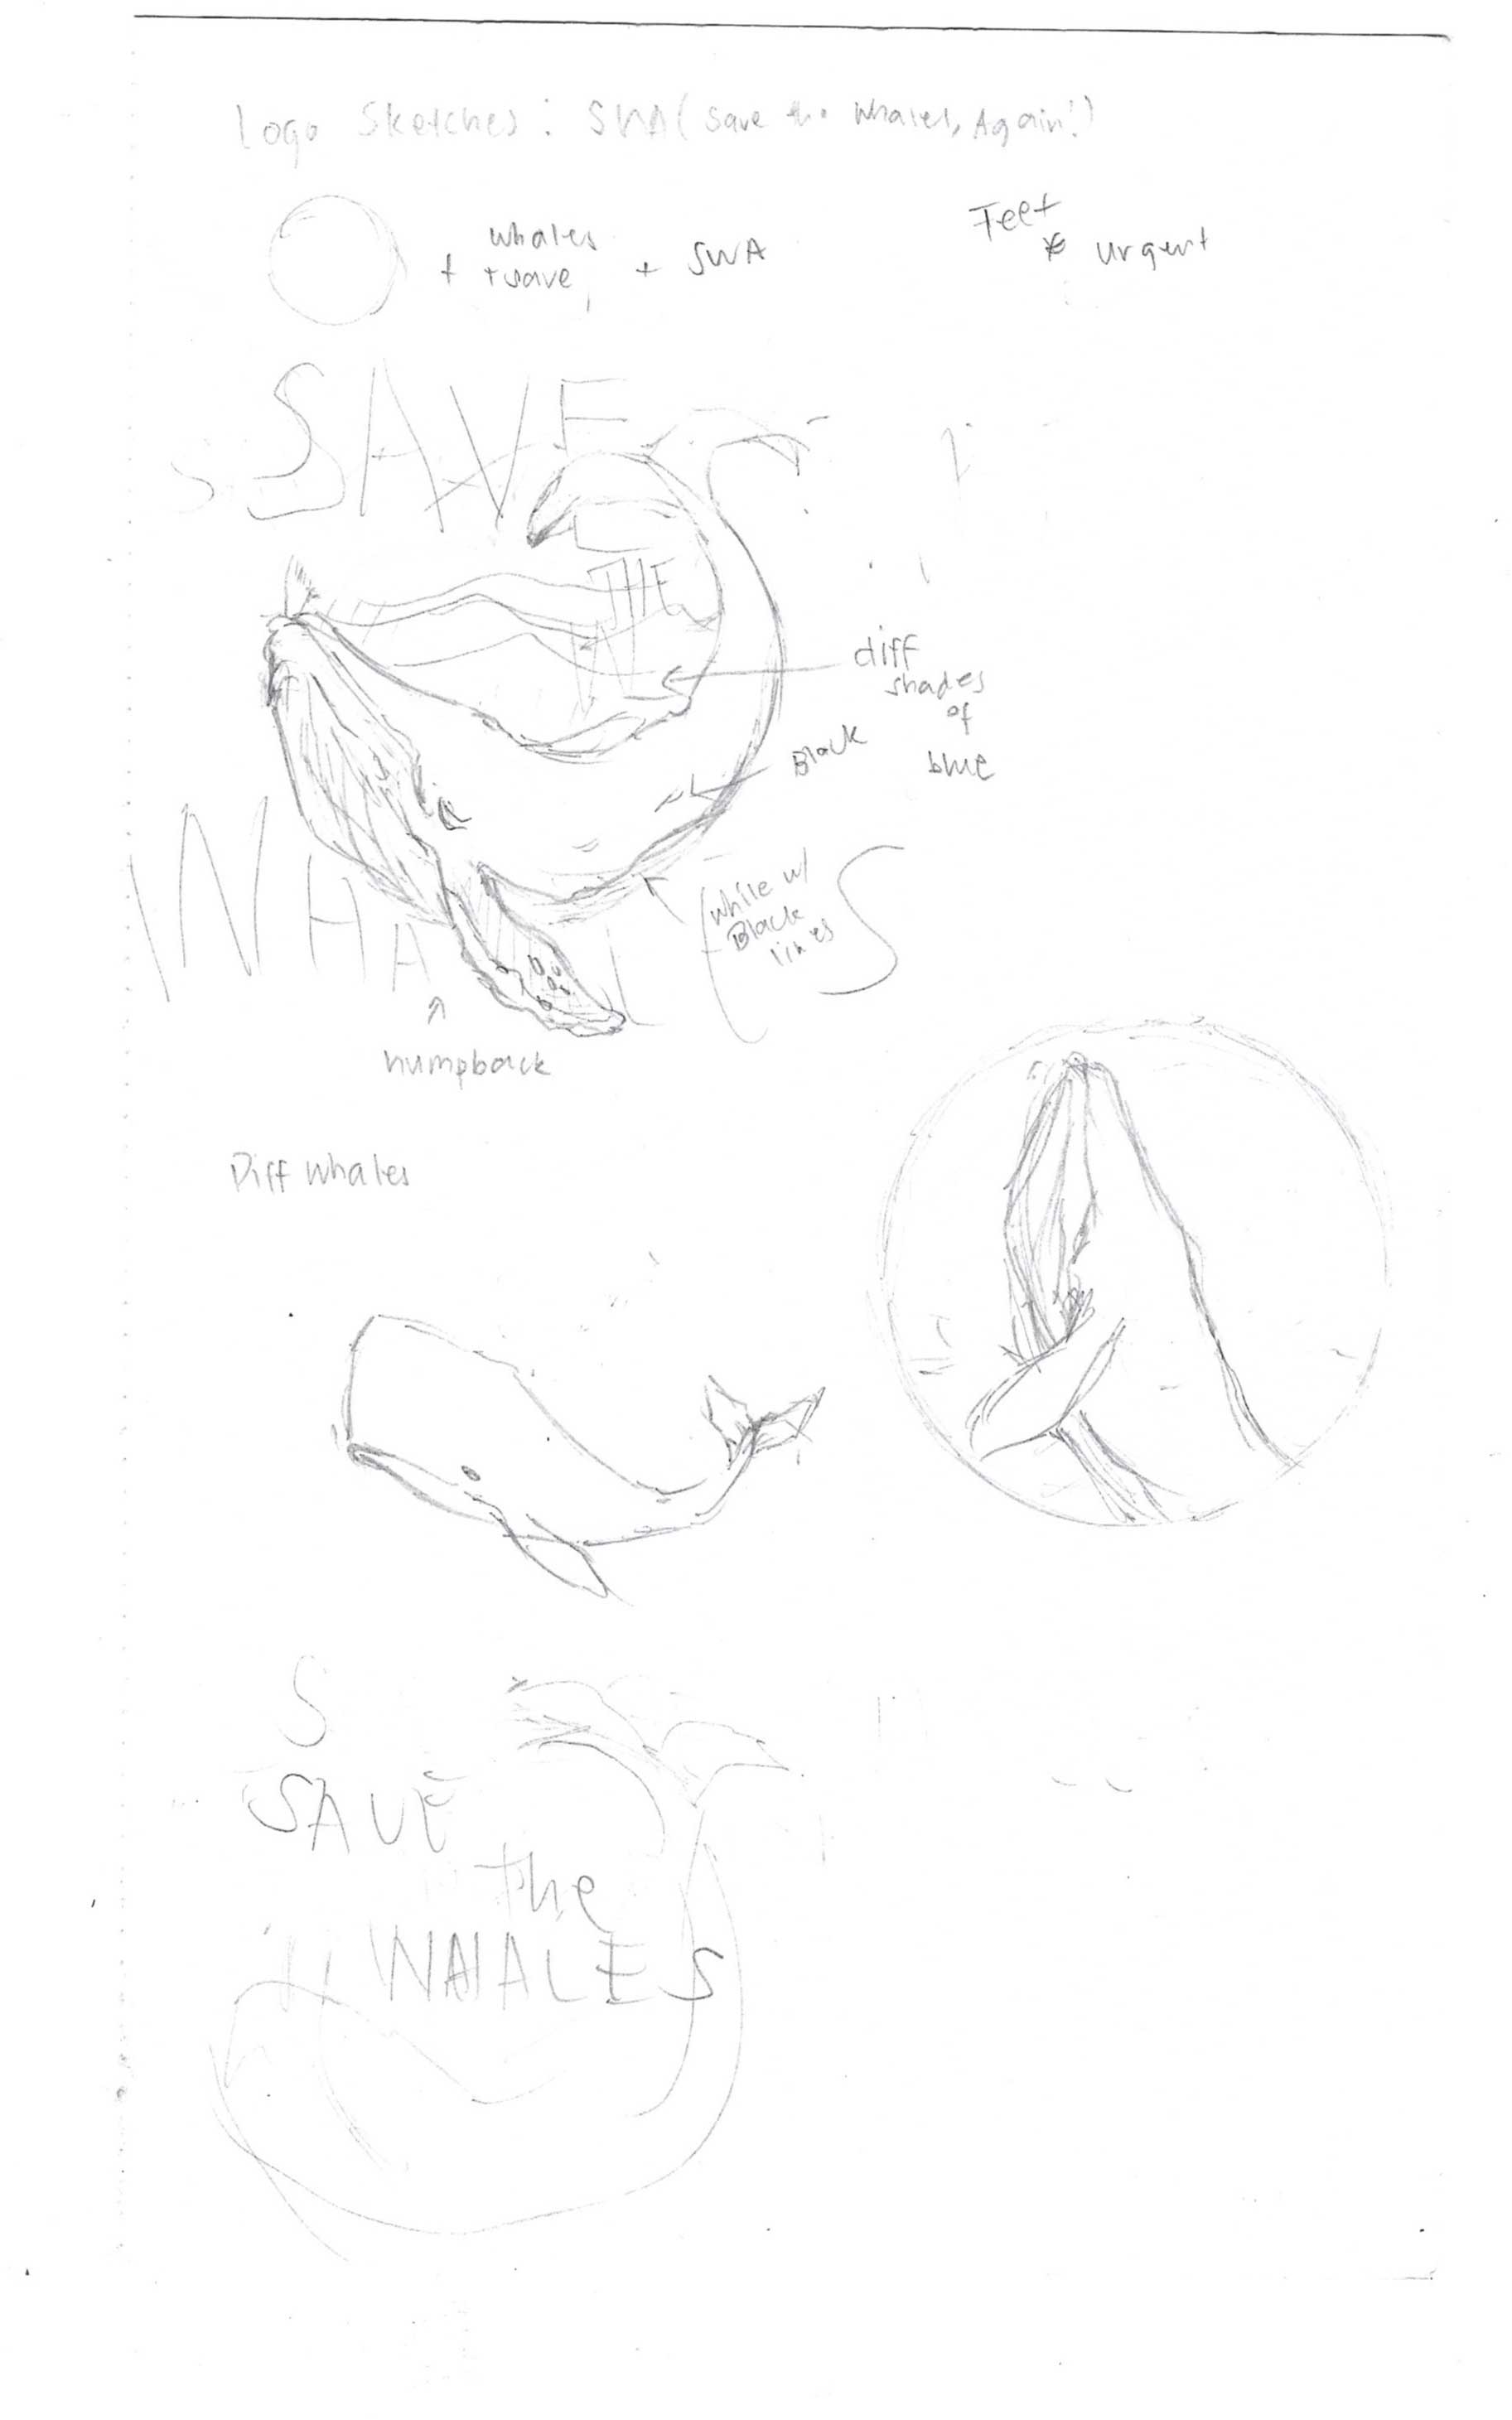 Logo Sketches: SWA (Save the Whales, Again!)
whales
+ + wave + SWA
* urgent
SAVE
THE
W
diff
shades
of
blue
Black
WHALES
(white w/
Black
lines
humpback
Diff whales
S
SAVE
the
WHALES